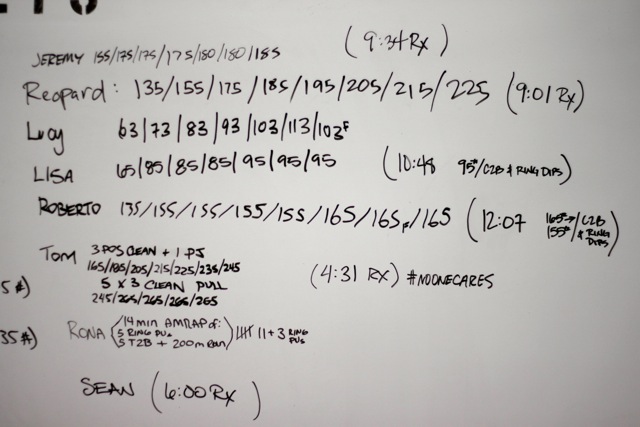 JEREMY 155/175/175/175/180/180/185 (9:34 Rx)
Reopard: 135/155/175/185/195/205/215/225 (9:01 Rx)
Lucy 63/73/83/93/103/113/103F
LISA 65/85/85/85/95/95/95 (10:48 95#/C2B & RING DIPS)
ROBERTO 135/155/155/155/155/165/165F/165 (12:07 165#→/C2B
155#/& RING
DIPS)
Tom 3 POS CLEAN + 1 PJ
165/185/205/215/225/235/245 (4:31 RX) #NOONECARES
5#) 5 X 3 CLEAN PULL
245/265/265/265/265
35#) RONA (14 min AMRAP of:
5 RING PUs
5 T2B + 200m Run) 11+3 RING
PUs
SEAN (6:00 Rx)